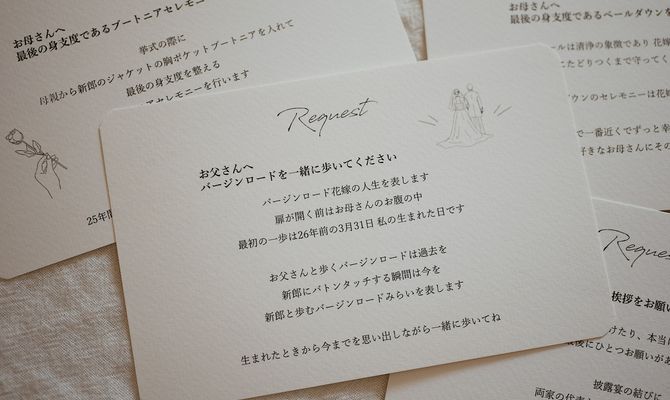 お母さんへ
最後の身支度であるブートニアセレモニー
挙式の際に
母親から新郎のジャケットの胸ポケットブートニアを入れて
最後の身支度を整える
アセレモニーを行います
25年間
お母さんへ
最後の身支度であるベールダウンを
ールは清浄の象徴であり 花嫁
たどりつくまで守ってく
ダウンのセレモニーは花嫁
で一番近くでずっと幸
好きなお母さんにその
Request
お父さんへ
バージンロードを一緒に歩いてください
バージンロード花嫁の人生を表します
扉が開く前はお母さんのお腹の中
最初の一歩は26年前の3月31日 私の生まれた日です
お父さんと歩くバージンロードは過去を
新郎にバトンタッチする瞬間は今を
新郎と歩むバージンロードみらいを表します
生まれたときから今までを思い出しながら一緒に歩いてね
Reques
挨拶をお願い
けたり、本当に
最後にひとつお願いがあ
披露宴の結びに
両家の代表